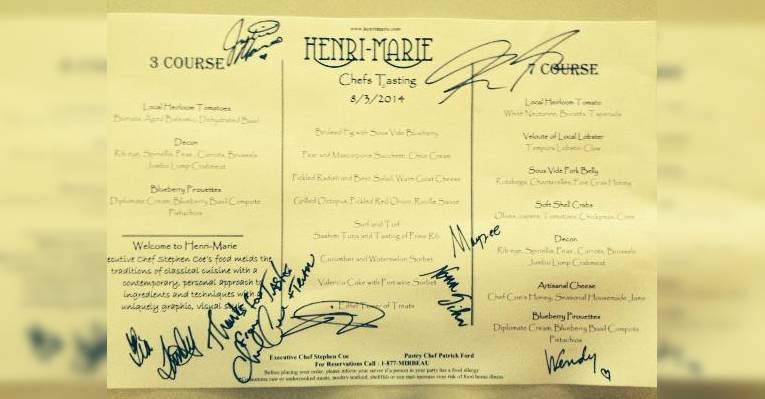 www.henrimarie.com
HENRI-MARIE
Chefs Tasting
8/3/2014
3 COURSE
Local Heirloom Tomatoes
Burrata, Aged Balsamic, Dehydrated Basil
Decon
Rib-eye, Spinellis, Peas, Carrots, Brussels
Jumbo Lump Crabmeat
Blueberry Pirouettes
Diplomate Cream, Blueberry Basil Compote
Pistachios
Welcome to Henri-Marie
ecutive Chef Stephen Coe's food melds the
traditions of classical cuisine with a
contemporary, personal approach to
ingredients and techniques with a
uniquely graphic, visual style
Bruleed Fig with Sous Vide Blueberry
Pear and Mascarpone Sacchetti, Chive Cream
Pickled Radish and Beet Salad, Warm Goat Cheese
Grilled Octopus, Pickled Red Onion, Rouille Sauce
Surf and Turf
Sashimi Tuna and Tasting of Prime Rib
Cucumber and Watermelon Sorbet
Valencia Cake with Port wine Sorbet
Tower of Treats
7 COURSE
Local Heirloom Tomato
White Nectarine, Burrata, Tapenade
Veloute of Local Lobster
Tempura Lobster Claw
Sous Vide Pork Belly
Rutabaga, Chanterelles, Foie Gras Honey
Soft Shell Crabs
Olives, capers, Tomatoes, Chickpeas, Corn
Decon
Rib-eye, Spinellis, Peas, Carrots, Brussels
Jumbo Lump Crabmeat
Artisanal Cheese
Chef Coe's Honey, Seasonal Housemade Jams
Blueberry Pirouettes
Diplomate Cream, Blueberry Basil Compote
Pistachios
Thanks for Taste
From
Wendy
Executive Chef Stephen Coe Pastry Chef Patrick Ford
For Reservations Call : 1-877-MIRBEAU
Before placing your order, please inform your server if a person in your party has a food allergy
Consuming raw or undercooked meats, poultry seafood, shellfish or eggs may increase your risk of food borne illness